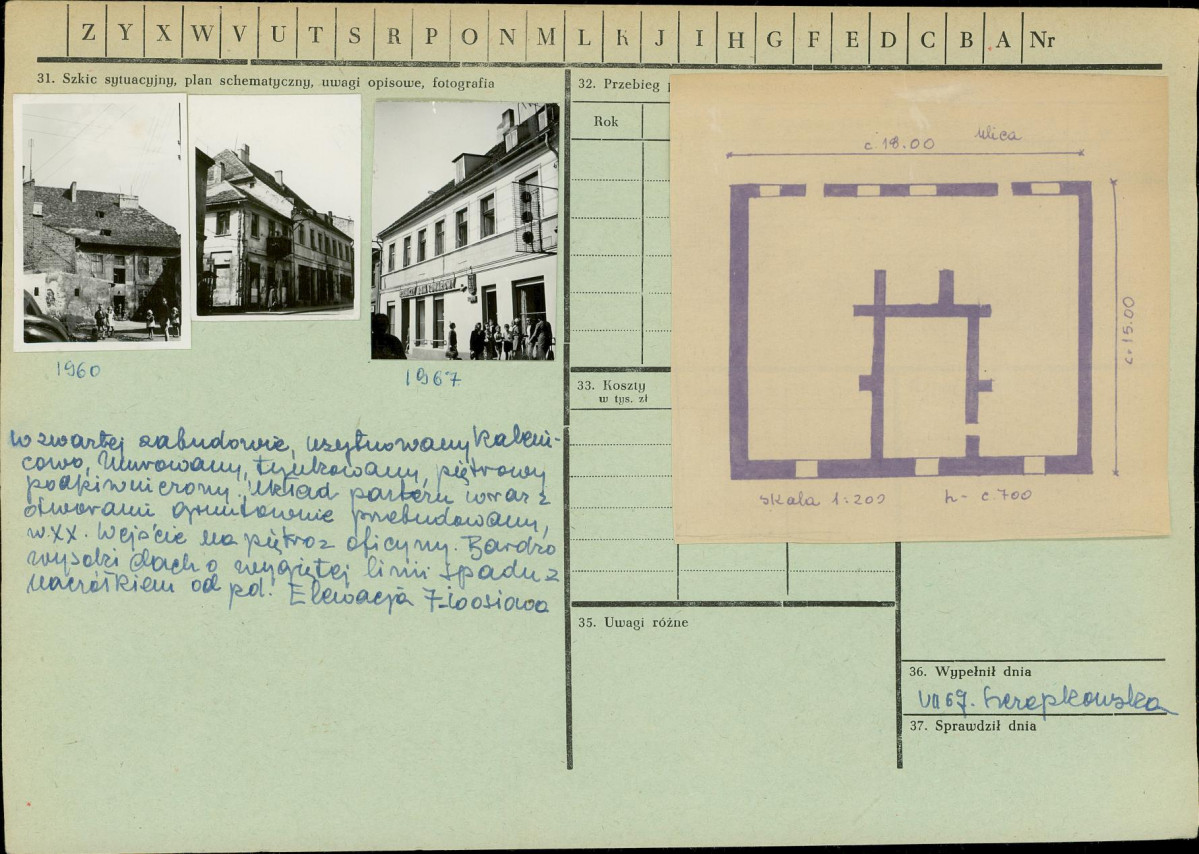 Z Y X W V U T S R P O N M L K J I H G F E D C B A Nr
31. Szkic sytuacyjny, plan schematyczny, uwagi opisowe, fotografia
1960
1967
W zwartej zabudowie, usytuowany kaleni-
cowo, Murowany, tynkowany, piętrowy
podpiwniczony. Układ parteru wraz z
otworami gruntownie przebudowany,
w XX. Wejście na piętro z oficyny. Bardzo
wysoki dach o wygiętej linii spadu z
naczółkiem od pd. Elewacja 7-ioosiowa
32. Przebieg
Rok
33. Koszty
w tys. zł
ulica
c. 18.00
c. 15.00
Skala 1:200
h - c 700
35. Uwagi różne
36. Wypełnił dnia
VII 67.
37. Sprawdził dnia